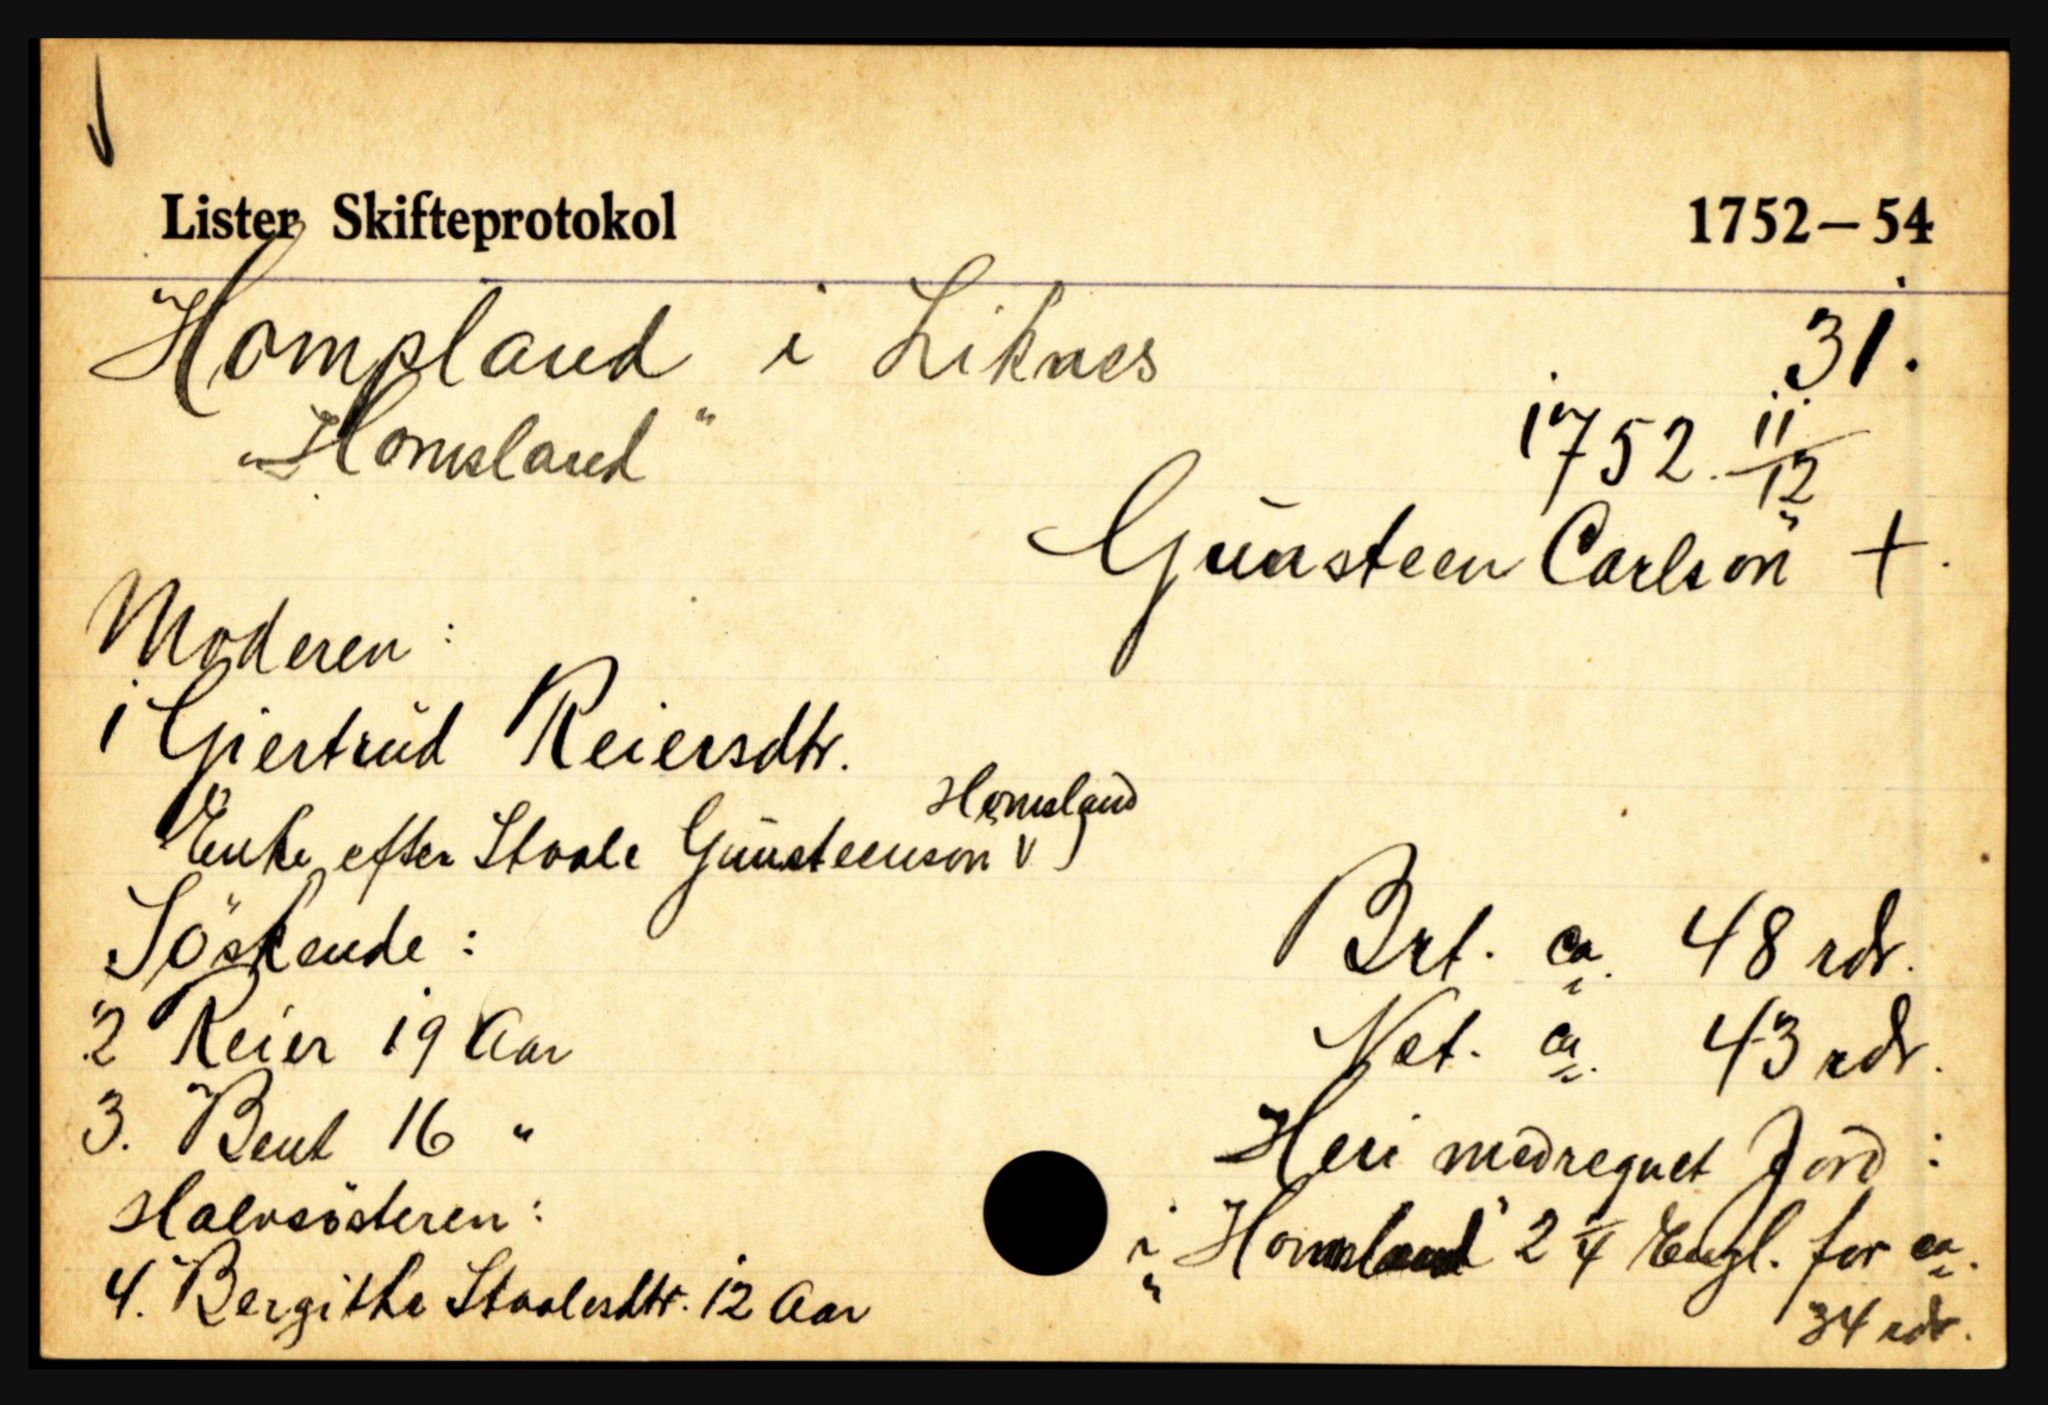 Lister Skifteprotokol 1752-54
Hompland i Liknes 31.
"Homsland"
1752. 11/12
Gunsteen Carlson +.
Moderen:
1 Giertrud Reiersdtr.
Homsland
Enke efter Staale Gunsteenson v
Söskende:
Brt. ca. 48 rdr.
2 Reier 19 Aar
Net. ca. 43 rdr.
3. Bent 16 "
Heri medregnet Jord:
Halvsösteren:
i "Homsland" 2 1/4 Engl. for ca.
4. Bergithe Staalesdtr. 12 Aar
34 rdr.